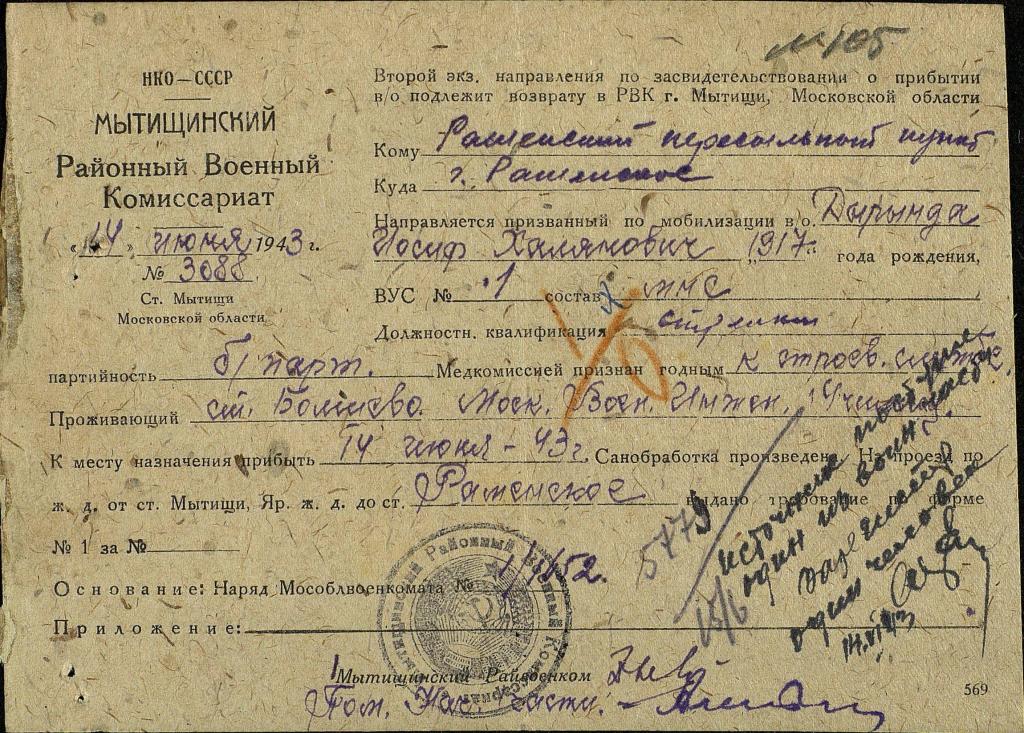 № 105
НКО—СССР
МЫТИЩИНСКИЙ
Районный Военный
Комиссариат
„14" июня 1943 г.
№ 3088
Ст. Мытищи
Московской области
Второй экз. направления по засвидетельствовании о прибытии
в/о подлежит возврату в РВК г. Мытищи, Московской области
Кому Раменский пересыльный пункт
Куда г. Раменское
Направляется призванный по мобилизации в/о Дырында
Иосиф 1917 года рождения,
ВУС № 1 состав мнс
Должностн. квалификация стрелки
партийность б/парт. Медкомиссией признан годным к строев. службе.
Проживающий ст. Болшево Моск. Воен. Инжен. Училище
К месту назначения прибыть 14 июня - 43 г. Санобработка произведена. На проезд по
ж. д. от ст. Мытищи, Яр. ж. д. до ст. Раменское выдано требование по форме
№ 1 за №
Основание: Наряд Мособлвоенкомата № 1/1152.
Приложение:
5479
15/6
один
один человек
14.VI.43
Мытищинский Районный Военный Комиссариат
Мытищинский Райвоенком
Пом. Нач. части:
569